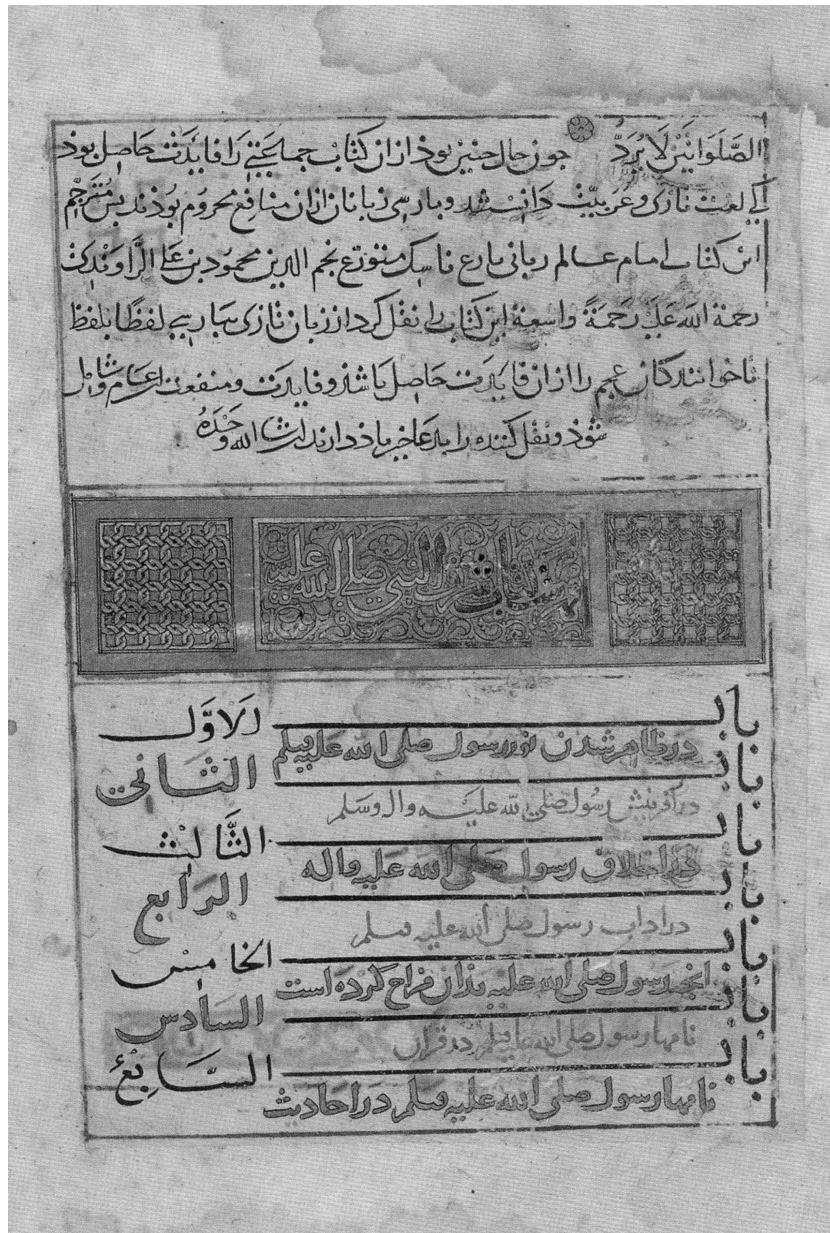 الصَّلَوَاتَيْنِ لَا يُرَدُّ جون حال جنين بوذ ازان كتاب جماعتى را فايدت حاصل بوذ
كى لغت تازى و عربيّت دانستند و بارسى زبانان ازان منافع محروم بوذند بس مُترجم
اين كتاب امام عالم ربانى بارع ناسك متورّع نجم الدين محمود بن على الرَّاوَندى
رحمة الله عليه رحمةً واسعة اين كتاب را نقل كرد از زبان تازى ببارسى لفظًا بلفظ
تا خوانندكان عجم را ازان فايدت حاصل باشذ و فايدت و منفعت ان عام و شامل
شوذ و نقل كننده را بدعا خير ياذ دارند ان شا الله وحدهُ
شرف النبى صلى الله عليه
باب الاوّل
در ظاهر شدن نور رسول صلى الله عليه وسلم
باب الثانى
در آفرينش رسول صلى الله عليه واله وسلم
باب الثَّالِث
در اخلاق رسول صلى الله عليه واله
باب الرابع
در اداب رسول صلى الله عليه وسلم
باب الخامِس
انچه رسول صلى الله عليه بذان مزاح كرده است
باب السادس
نامها رسول صلى الله عليه وسلم در قران
باب السَّابِع
نامها رسول صلى الله عليه وسلم در احاديث